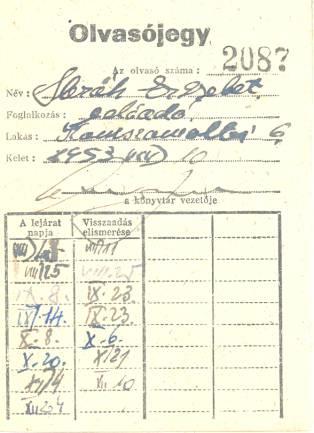 Olvasójegy
Az olvasó száma: 2087
Név: Erzsébet
Foglalkozás: eladó
Lakás: 6
Kelet: 1953 VIII 10
a könyvtár vezetője
A lejárat napja Visszaadás elismerése
VIII/11
VIII/25 VIII.25
IX.8. IX.23
IX.14. IX.23.
X.8. X.6.
X.20. X/21
XI/4 XI.10